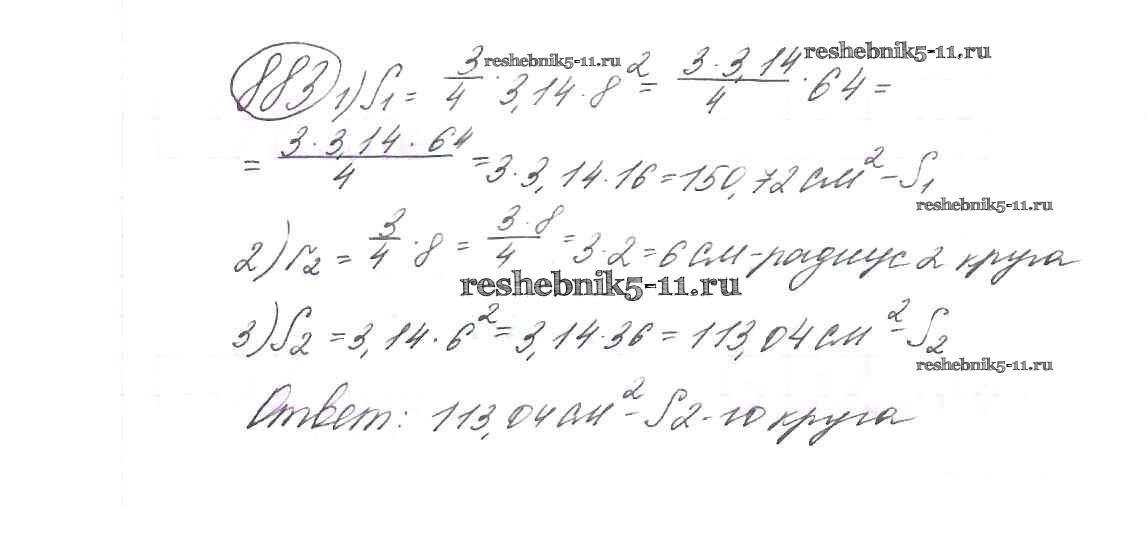 reshebnik5-11.ru reshebnik5-11.ru
883 1) S₁ = 3/4 · 3,14 · 8² = 3 · 3,14/4 · 64 =
= 3 · 3,14 · 64/4 = 3 · 3,14 · 16 = 150,72 см² – S₁
reshebnik5-11.ru
2) r₂ = 3/4 · 8 = 3 · 8/4 = 3 · 2 = 6 см – радиус 2 круга
reshebnik5-11.ru
3) S₂ = 3,14 · 6² = 3,14 · 36 = 113,04 см² – S₂
reshebnik5-11.ru
Ответ: 113,04 см² – S 2-го круга